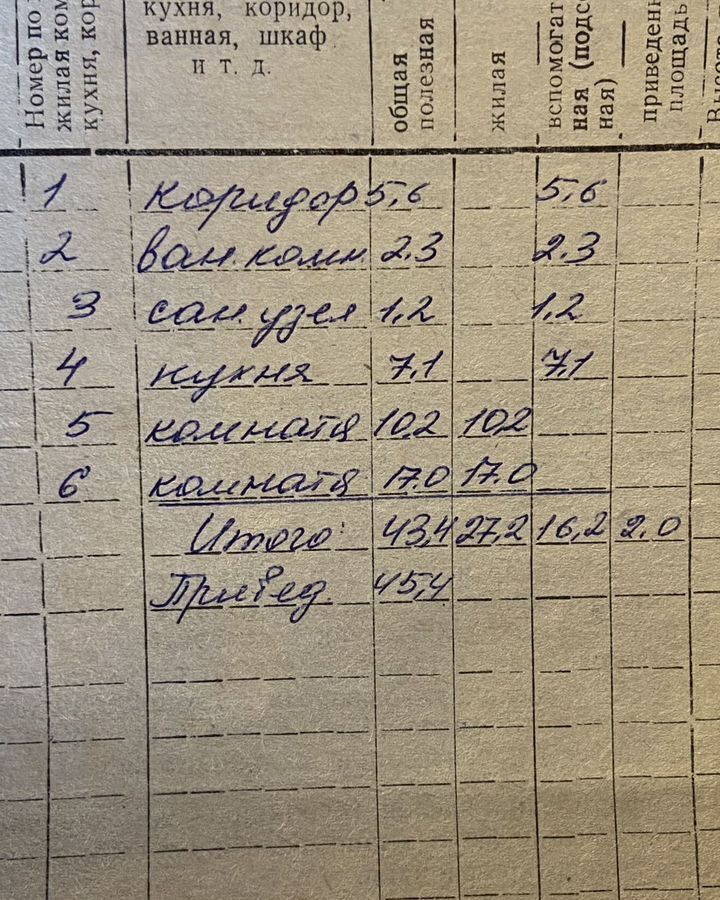 Номер по
жилая ком
кухня, кор
кухня, коридор,
ванная, шкаф
и т. д.
общая
полезная
жилая
вспомогат
ная (подсо
ная)
приведен
площадь
1 коридор 5,6 5,6
2 ван. комн. 2.3 2.3
3 сан. узел 1,2 1,2
4 кухня 7,1 7,1
5 комната 10,2 10,2
6 комната 17.0 17.0
Итого: 43,4 27,2 16,2 2.0
Привед. 45,4